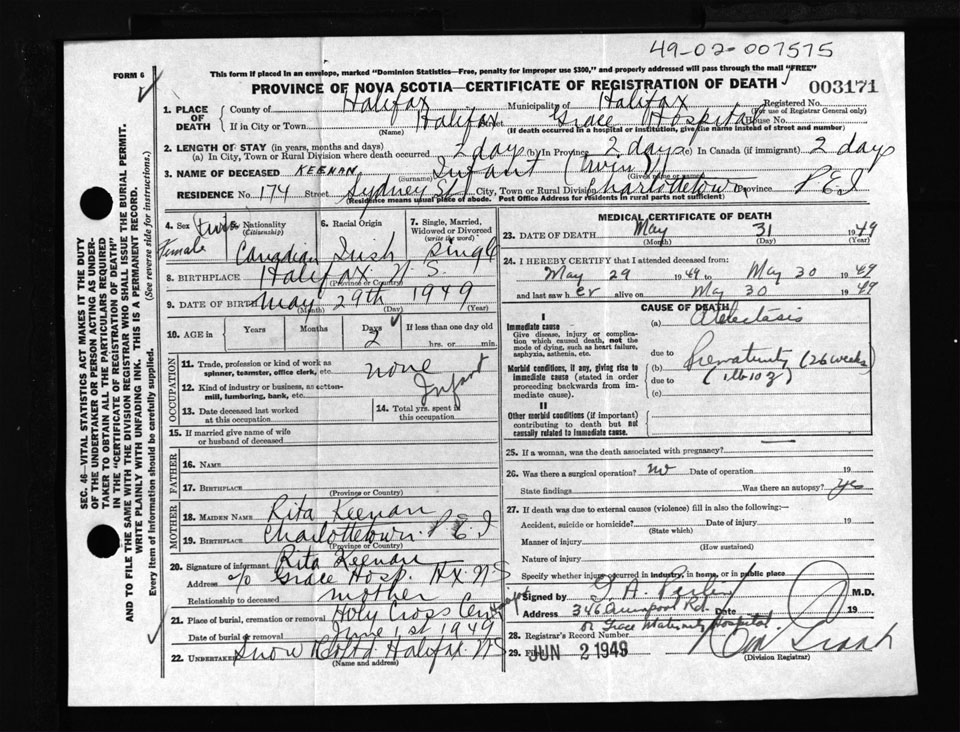 49-02-007575
FORM 6
This form if placed in an envelope, marked "Dominion Statistics—Free, penalty for improper use $300," and properly addressed will pass through the mail "FREE"
PROVINCE OF NOVA SCOTIA—CERTIFICATE OF REGISTRATION OF DEATH
003171
SEC. 46—VITAL STATISTICS ACT MAKES IT THE DUTY
OF THE UNDERTAKER OR PERSON ACTING AS UNDER-
TAKER TO OBTAIN ALL THE PARTICULARS REQUIRED
IN THE "CERTIFICATE OF REGISTRATION OF DEATH"
AND TO FILE THE SAME WITH THE DIVISION REGISTRAR WHO SHALL ISSUE THE BURIAL PERMIT.
WRITE PLAINLY WITH UNFADING INK. THIS IS A PERMANENT RECORD.
Every item of information should be carefully supplied. (See reverse side for instructions.)
1. PLACE OF DEATH County of Halifax Municipality of Halifax Registered No.
(For use of Registrar General only)
If in City or Town Halifax Street Grace Hospital House No.
(Name) (If death occurred in a hospital or institution, give the name instead of street and number)
2. LENGTH OF STAY (in years, months and days)
(a) In City, Town or Rural Division where death occurred 2 days (b) In Province 2 days (c) In Canada (if immigrant) 2 day
3. NAME OF DECEASED KEENAN Infant (Twin)
(Surname) (Given name or names)
RESIDENCE No. 174 Street Sydney St City, Town or Rural Division Charlottetown Province P.E.I
(Residence means usual place of abode. Post Office Address for residents in rural parts not sufficient)
4. Sex Female
5. Nationality (Citizenship) Canadian
6. Racial Origin Irish
7. Single, Married, Widowed or Divorced (write the word) Single
8. BIRTHPLACE Halifax N.S.
(Province or Country)
9. DATE OF BIRTH May 29th 1949
(Month) (Day) (Year)
10. AGE in Years Months Days 2 If less than one day old hrs. or min.
OCCUPATION
11. Trade, profession or kind of work as spinner, teamster, office clerk, etc. none
12. Kind of industry or business, as cotton-mill, lumbering, bank, etc. Infant
13. Date deceased last worked at this occupation
14. Total yrs. spent in this occupation
15. If married give name of wife or husband of deceased
FATHER
16. NAME
17. BIRTHPLACE
(Province or Country)
MOTHER
18. MAIDEN NAME Rita Keenan
19. BIRTHPLACE Charlottetown. P.E.I
(Province or Country)
20. Signature of informant Rita Keenan
Address c/o Grace Hosp. Hx. N.S
Relationship to deceased mother
21. Place of burial, cremation or removal Holy Cross
Date of burial or removal June 1st 1949
22. UNDERTAKER Snow & Co Ltd. Halifax. N.S
(Name and address)
MEDICAL CERTIFICATE OF DEATH
23. DATE OF DEATH May 31 1949
(Month) (Day) (Year)
24. I HEREBY CERTIFY that I attended deceased from:
May 29 1949 to May 30 1949
and last saw her alive on May 30 1949
CAUSE OF DEATH
I
Immediate cause
Give disease, injury or complication which caused death, not the mode of dying, such as heart failure, asphyxia, asthenia, etc.
(a) Atelectasis
due to
Morbid conditions, if any, giving rise to immediate cause (stated in order proceeding backwards from immediate cause).
(b) Prematurity (26 weeks)
due to (1 lb 10 z)
(c)
II
Other morbid conditions (if important) contributing to death but not causally related to immediate cause.
25. If a woman, was the death associated with pregnancy?
26. Was there a surgical operation? no Date of operation 19
State findings Was there an autopsy? yes
27. If death was due to external causes (violence) fill in also the following:—
Accident, suicide or homicide? Date of injury 19
(State which)
Manner of injury
(How sustained)
Nature of injury
Specify whether injury occurred in industry, in home, or in public place
Signed by M.D.
Address 346 Rd. Date 19
or Grace Maternity Hospital
28. Registrar's Record Number
29. Filed JUN 2 1949
(Division Registrar)